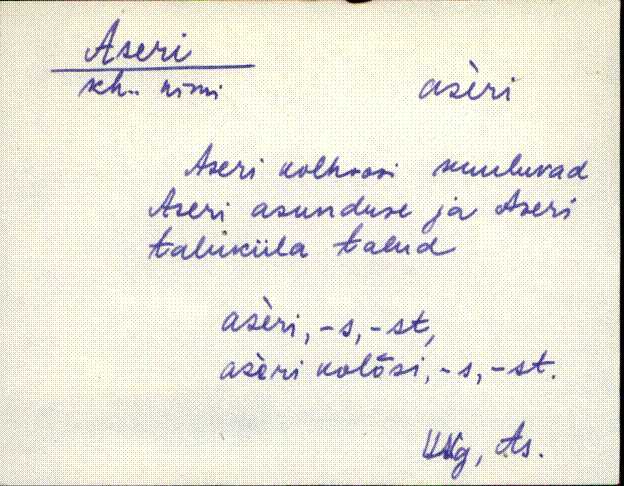 Aseri
kh. nimi
asèri
Aseri kolhoosi kuuluvad
Aseri asunduse ja Aseri
taluküla talud
asèri, -s, -st,
asèri kolõsi, -s, -st.
VNg, As.